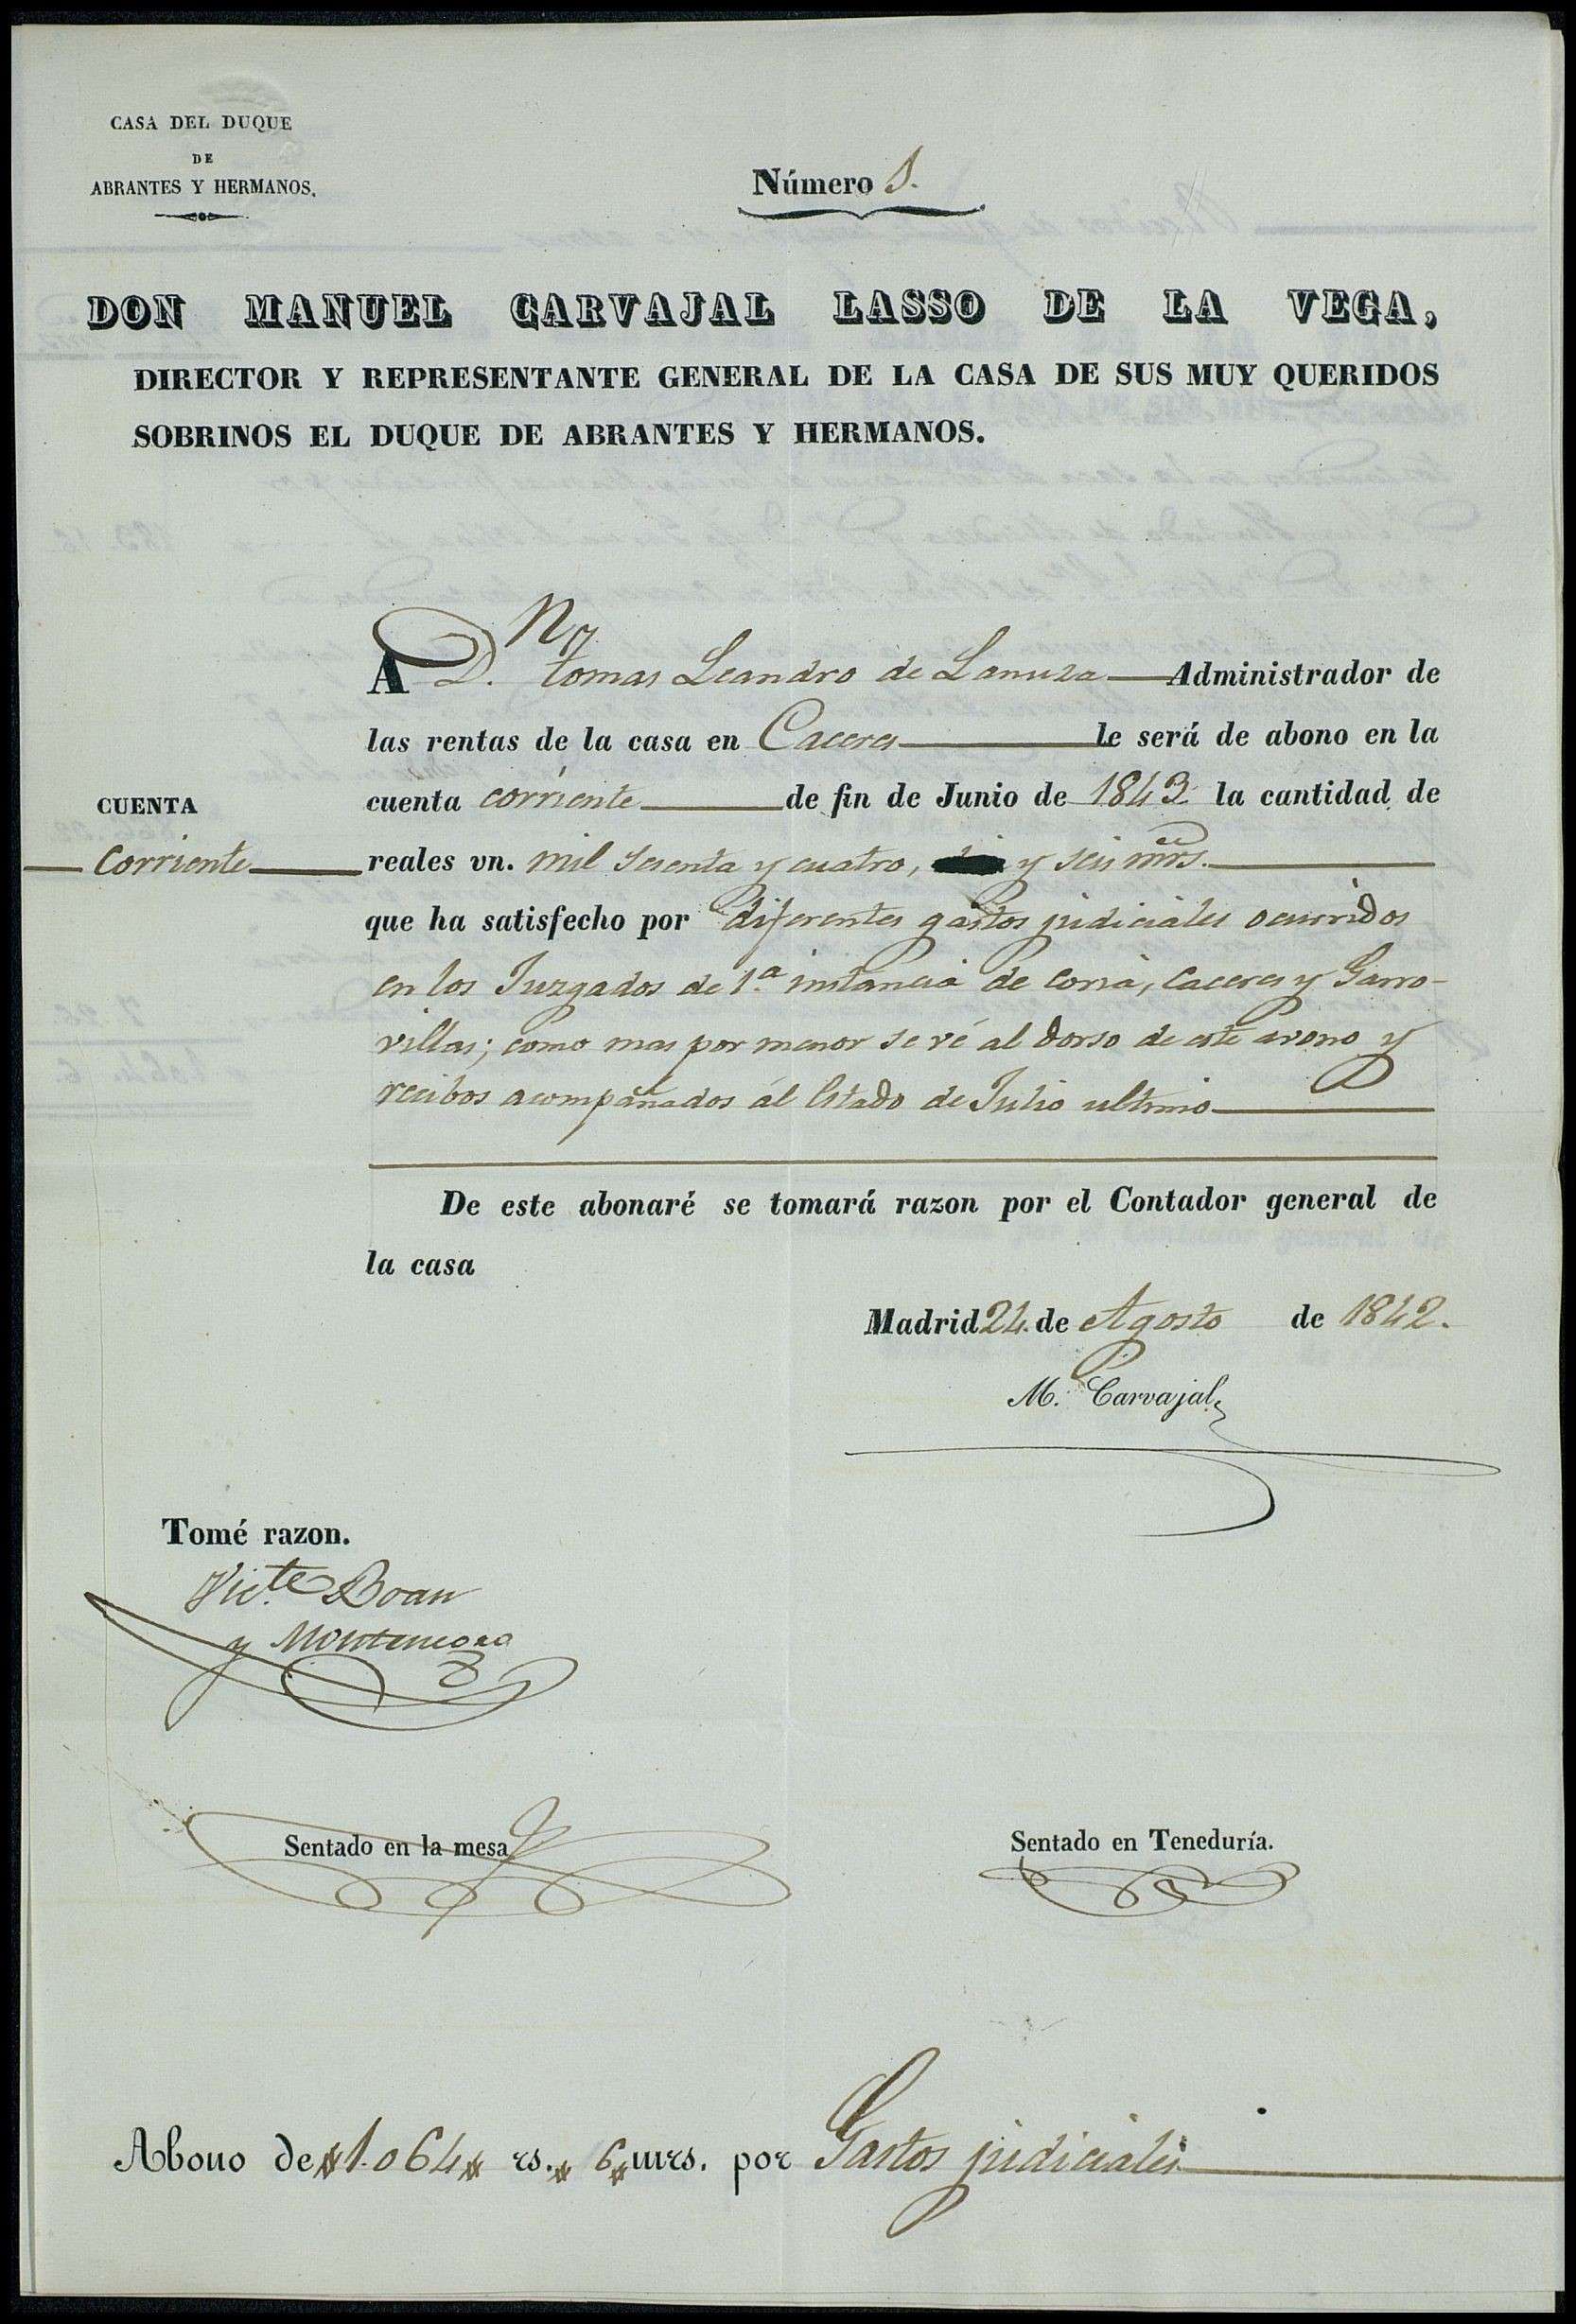 CASA DEL DUQUE
DE
ABRANTES Y HERMANOS.
Número 1.
DON MANUEL CARVAJAL LASSO DE LA VEGA,
DIRECTOR Y REPRESENTANTE GENERAL DE LA CASA DE SUS MUY QUERIDOS
SOBRINOS EL DUQUE DE ABRANTES Y HERMANOS.
A D.n Tomas Leandro de Lanuza Administrador de
las rentas de la casa en Caceres le será de abono en la
cuenta corriente de fin de Junio de 1843 la cantidad de
CUENTA
Corriente
reales vn. mil sesenta y cuatro, y seis mrs.
que ha satisfecho por diferentes gastos judiciales ocurridos
en los Juzgados de 1.a instancia de Coria, Caceres y Garro-
villas; como mas por menor se vé al dorso de este avono y
recibos acompañados al Estado de Julio ultimo
De este abonaré se tomará razon por el Contador general de
la casa
Madrid 24 de Agosto de 1842.
M. Carvajal
Tomé razon.
Vic.te Boan
y Montenegro
Sentado en la mesa
Sentado en Teneduría.
Abono de 1.064 rs. 6 mrs. por Gastos judiciales